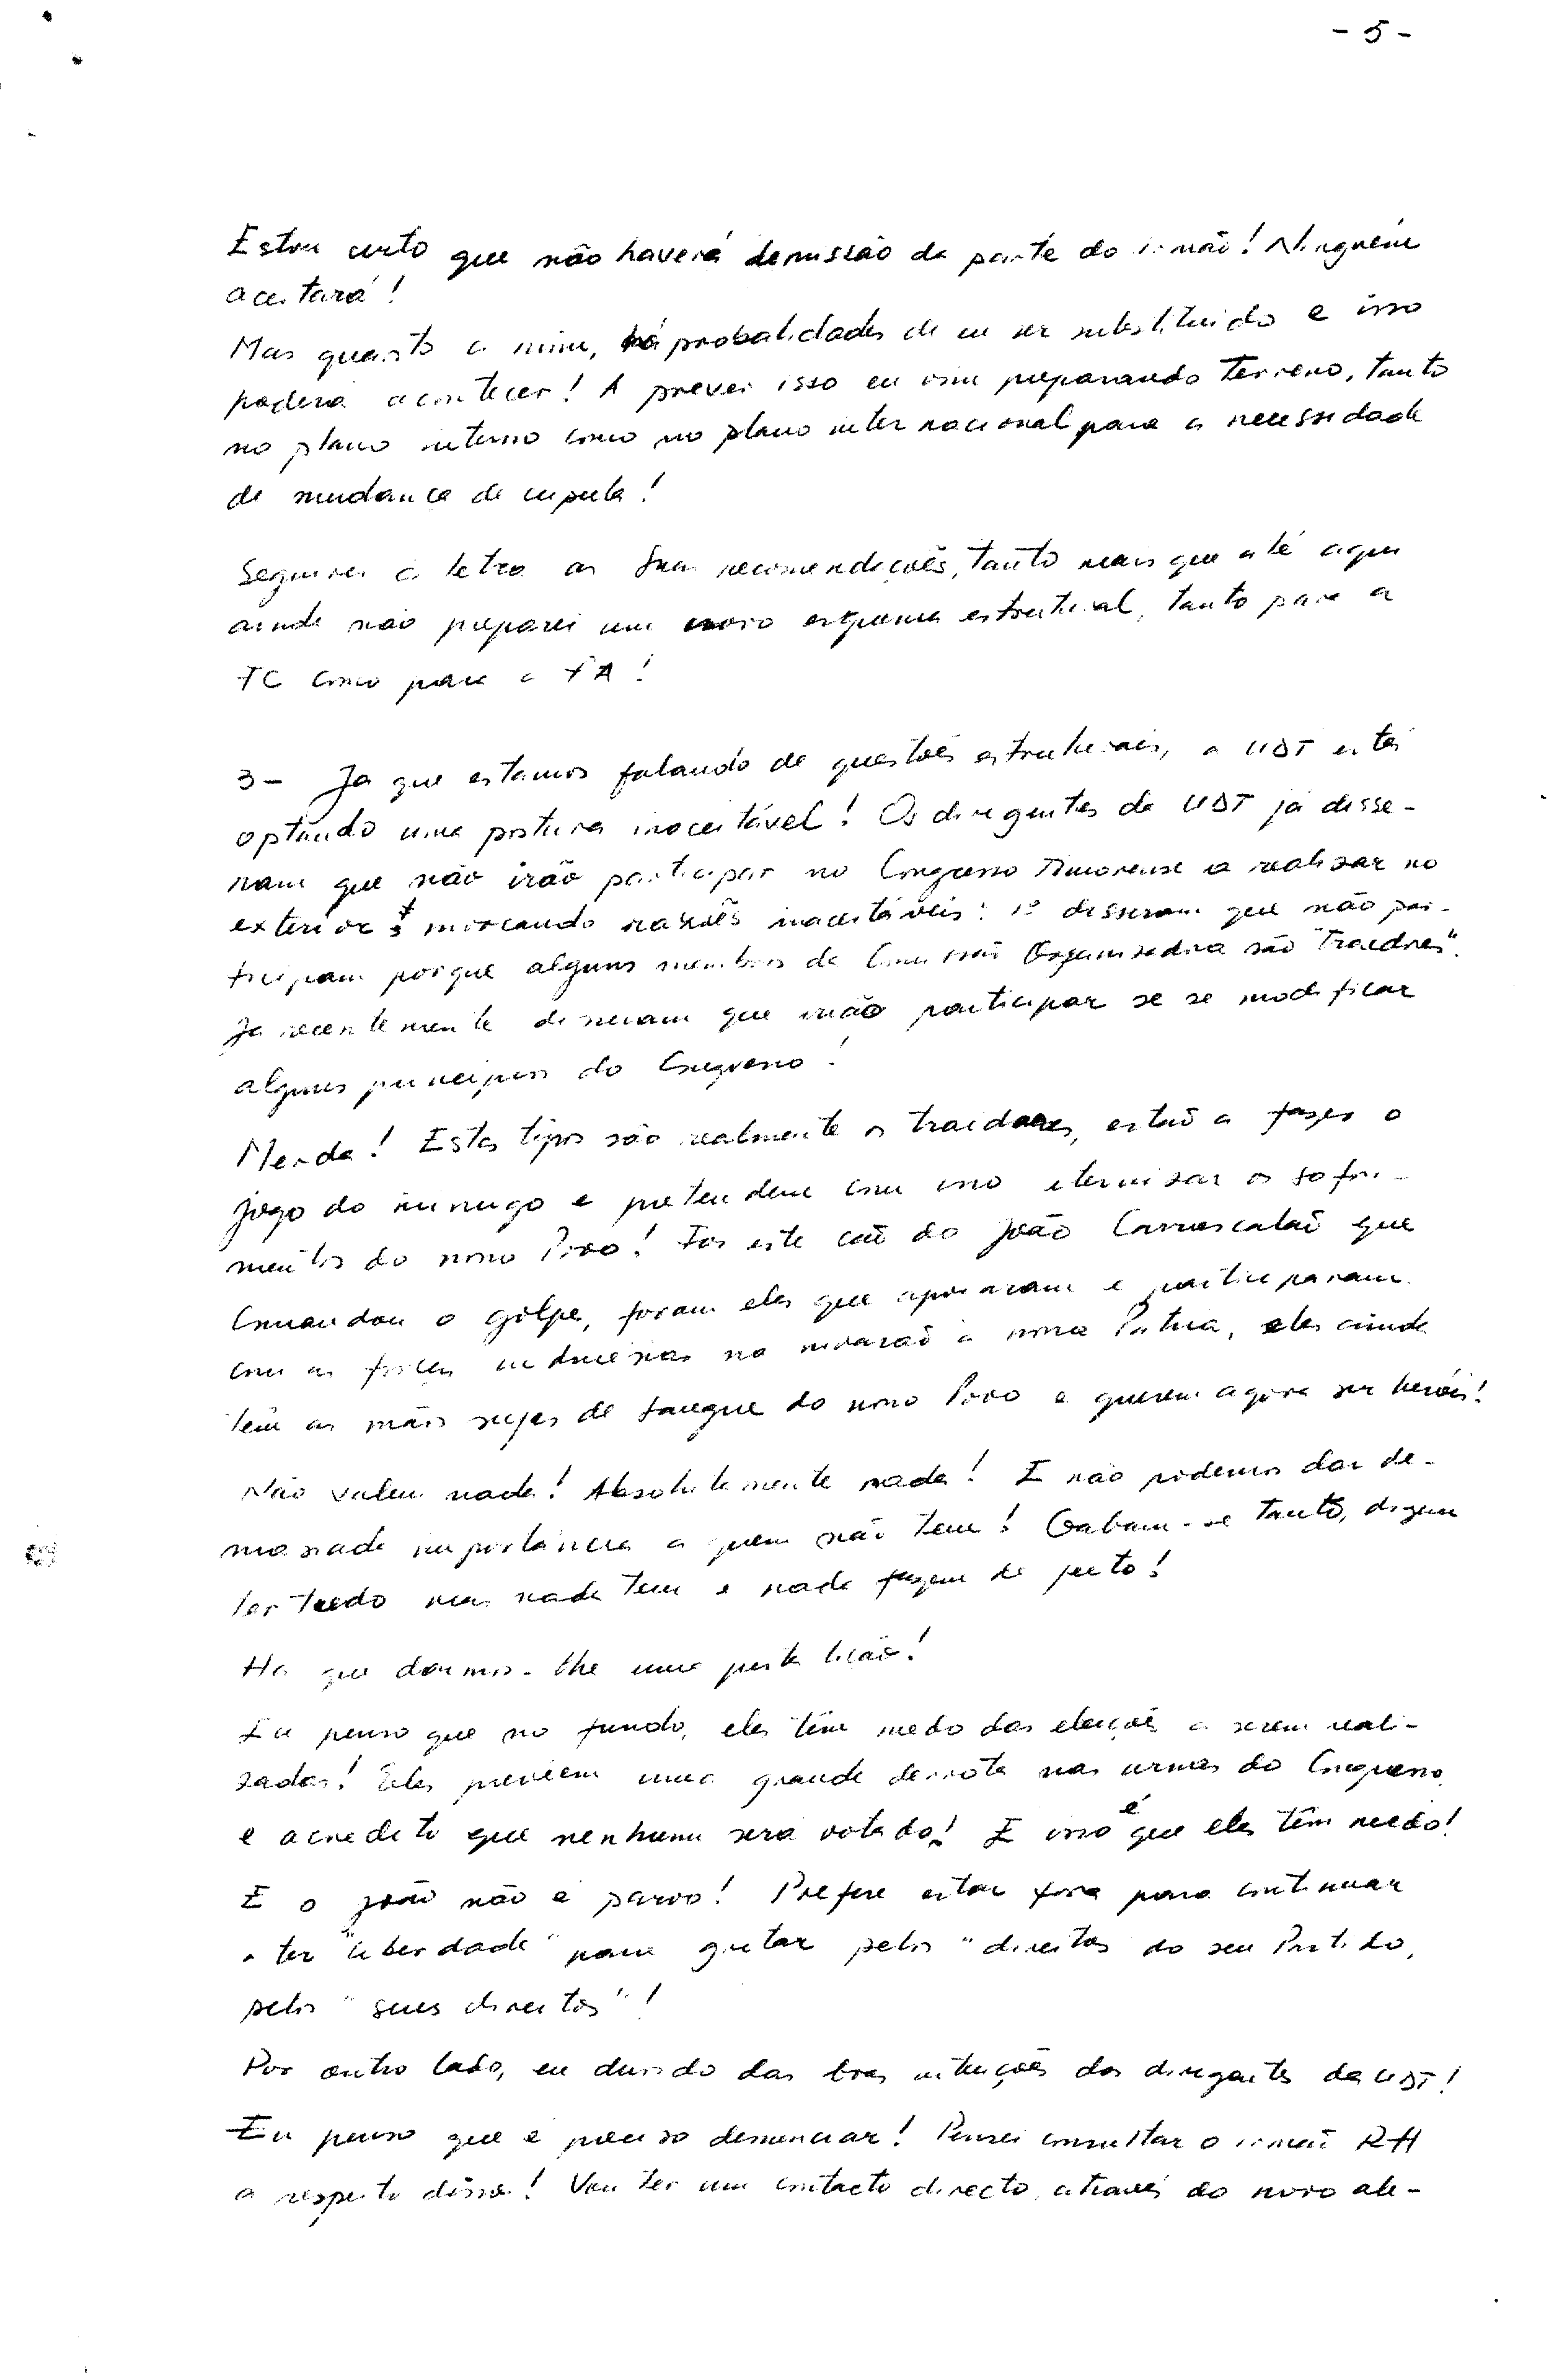 - 5 -
Estou certo que não haverá demissão da parte do irmão! Ninguém
aceitará!
Mas quanto a mim, há probalidades de eu ser substituido e isso
poderá acontecer! A prever isso eu vim preparando terreno, tanto
no plano interno como no plano internacional para a necessidade
de mudança de cupula!
Seguirei à letra as Suas recomendações, tanto mais que até aqui
ainda não preparei um novo esquema estrutural, tanto para a
FC como para a FA!
3- Ja que estamos falando de questões estruturais, a UDT está
optando uma postura inaceitável! Os dirigentes da UDT já disse-
ram que não irão participar no Congresso Timorense a realizar no
exterior invocando razões inaceitáveis: 1º disseram que não par-
ticipam porque alguns membros da Comissão Organizadora são "Traidores".
Ja recentemente disseram que irão participar se se modificar
alguns principios do Congresso!
Merda! Estes tipos são realmente os traidores, estão a fazer o
jogo do inimigo e pretendem com isso eternizar os sofri-
mentos do nosso Povo! Foi este cão do João Carrascalão que
Comandou o golpe, foram eles que apoiaram e participaram
com as forças indonésias na invasão à nossa Pátria, eles ainda
têm as mãos sujas de sangue do nosso Povo e querem agora ser heróis!
Não valem nada! Absolutamente nada! E não podemos dar de-
masiada importância a quem não tem! Gabam-se tanto, dizem
ter tudo mas nada tem e nada fazem de jeito!
Ha que darmos-lhe uma justa lição!
Eu penso que no fundo, eles têm medo das eleições a serem reali-
zadas! Eles prevêem uma grande derrota nas urnas do Congresso
e acredito que nenhum será votado! E isso é que eles têm medo!
E o joão não é parvo! Prefere estar fora para continuar
a ter "liberdade" para gritar pelos "direitos do seu Partido,
pelos "seus direitos"!
Por outro lado, eu duvido das boas intenções dos dirigentes da UDT!
Eu penso que é preciso denunciar! Pensei consultar o irmão RH
a respeito disso! Vou ter um contacto directo, através do novo ale-